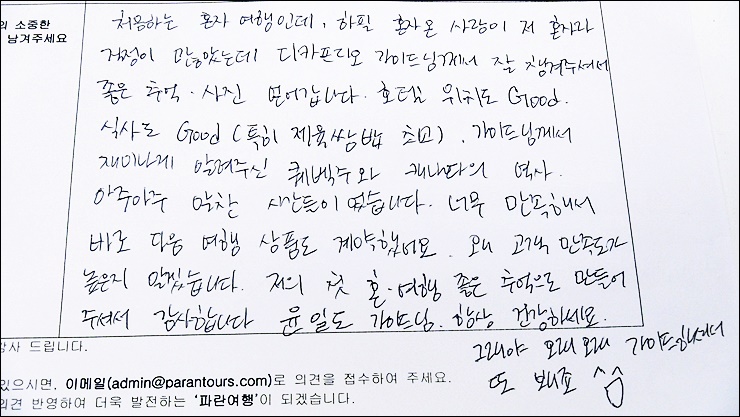 의 소중한
남겨주세요
처음하는 혼자 여행인데, 하필 혼자온 사람이 저 혼자라
걱정이 많았는데 디카프리오 가이드님께서 잘 챙겨주셔서
좋은 추억·사진 얻어갑니다. 호텔 위치도 Good.
식사도 Good (특히 제육쌈밥 최고), 가이드님께서
재미나게 알려주신 퀘벡주와 캐나다의 역사.
아주아주 알찬 시간들이였습니다. 너무 만족해서
바로 다음 여행 상품도 계약했어요. 왜 고객 만족도가
높은지 알겠습니다. 저의 첫 혼·여행 좋은 추억으로 만들어
주셔서 감사합니다 윤일도 가이드님. 항상 건강하세요.
그래야 오래 오래 가이드님께서
또 봬죠 ^^
감사 드립니다.
있으시면, 이메일(admin@parantours.com)로 의견을 접수하여 주세요.
의견 반영하여 더욱 발전하는 '파란여행'이 되겠습니다.